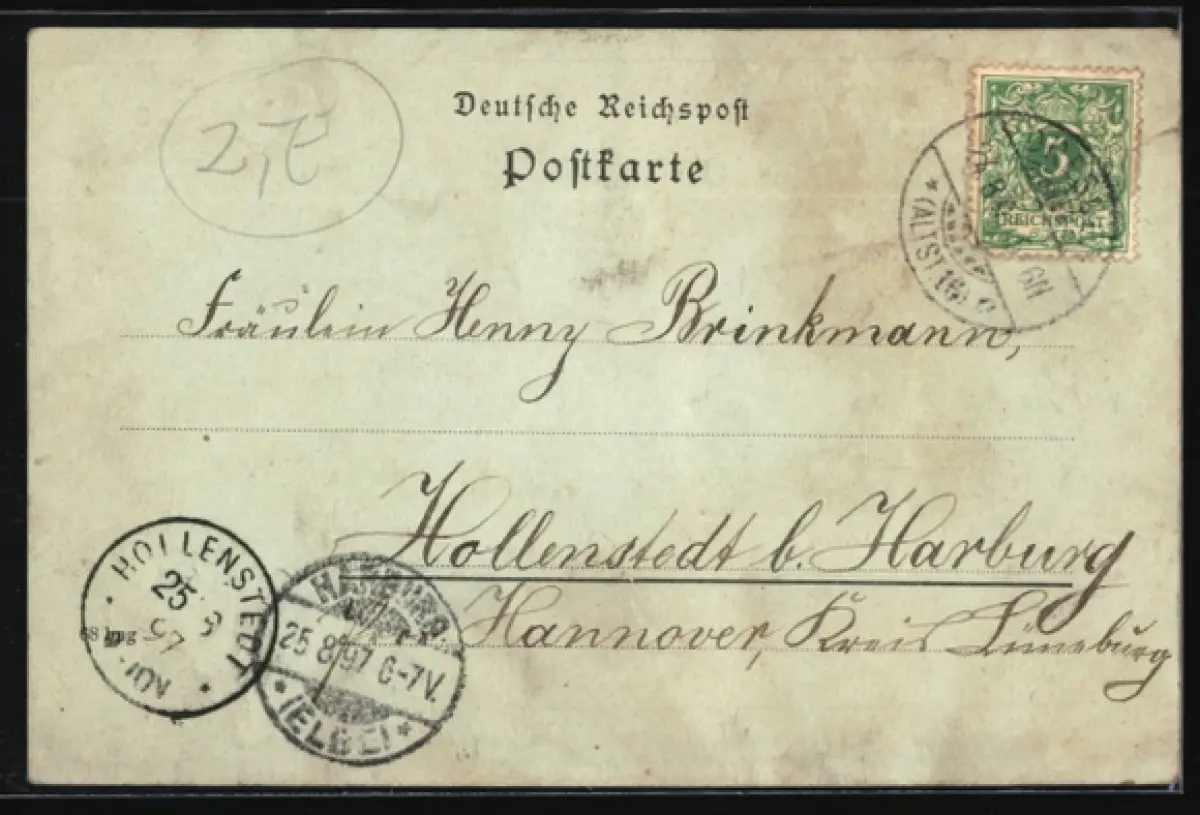 Deutsche Reichspost
Postkarte
5
REICHSPOST
* (ALTST.16)
6N
Fräulein Henny Brinkmann,
Hollenstedt b. Harburg
Hannover, Kreis Lüneburg
HOLLENSTEDT
25 8
97
HARBURG
25 8/97 6-7V.
* (ELBE) *